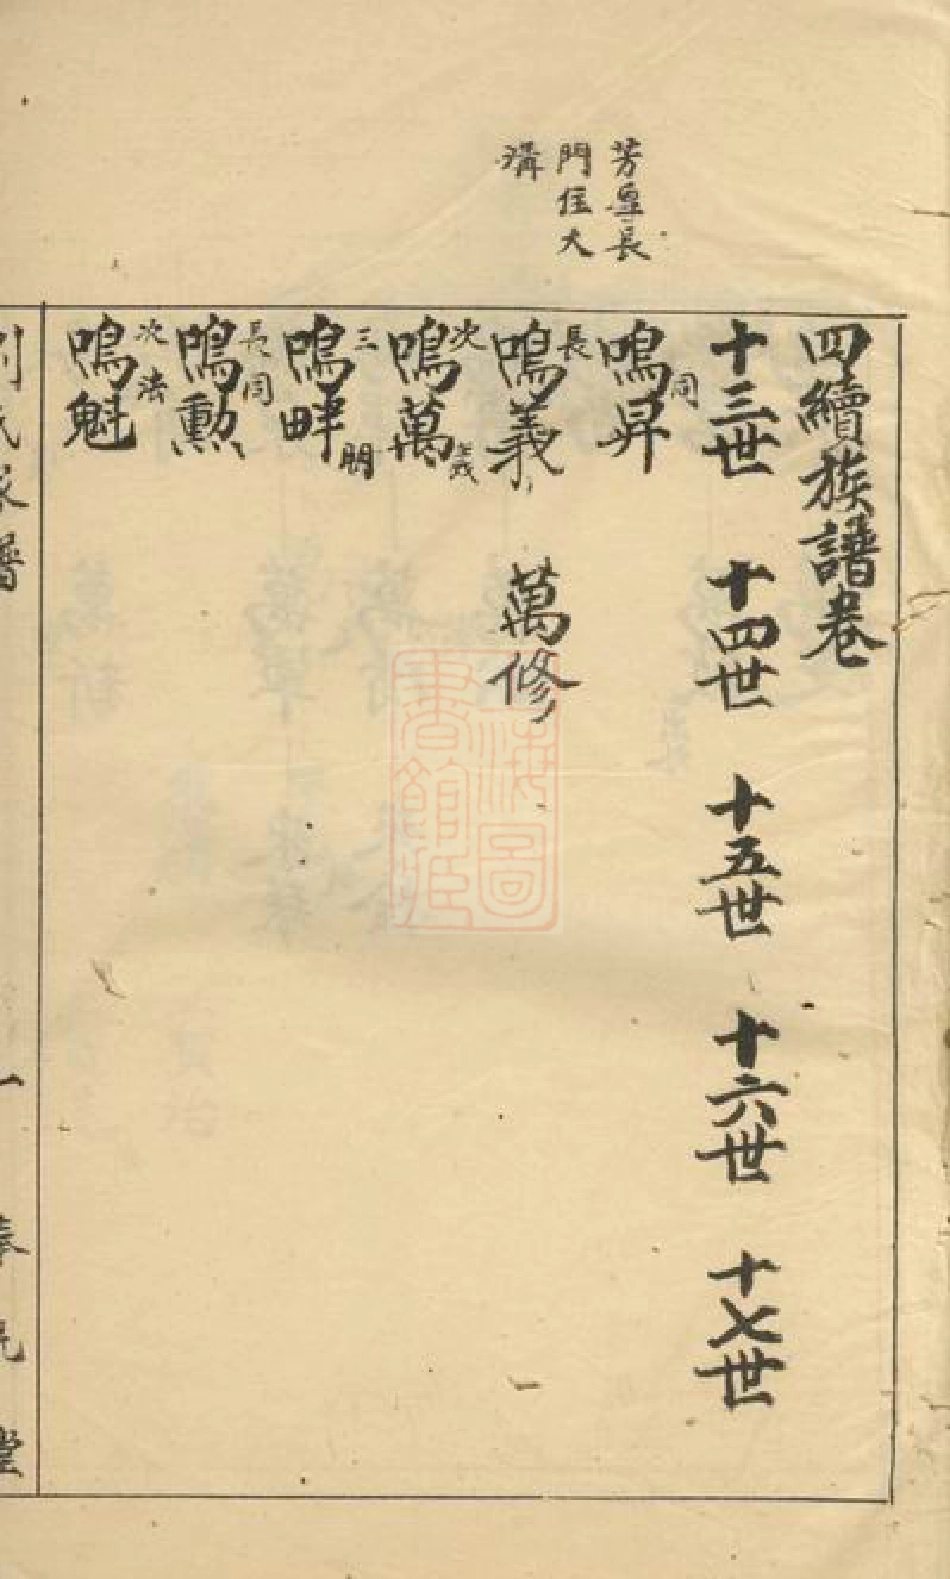 芳皐長
門住大
溝
四續族譜卷
十三世 十四世 十五世 十六世 十七世
同
鳴昇
長
鳴義 萬修
次 義
鳴萬
三 朋
鳴畔
長同
鳴勲
次法
鳴魁
劉氏家譜 一 堂